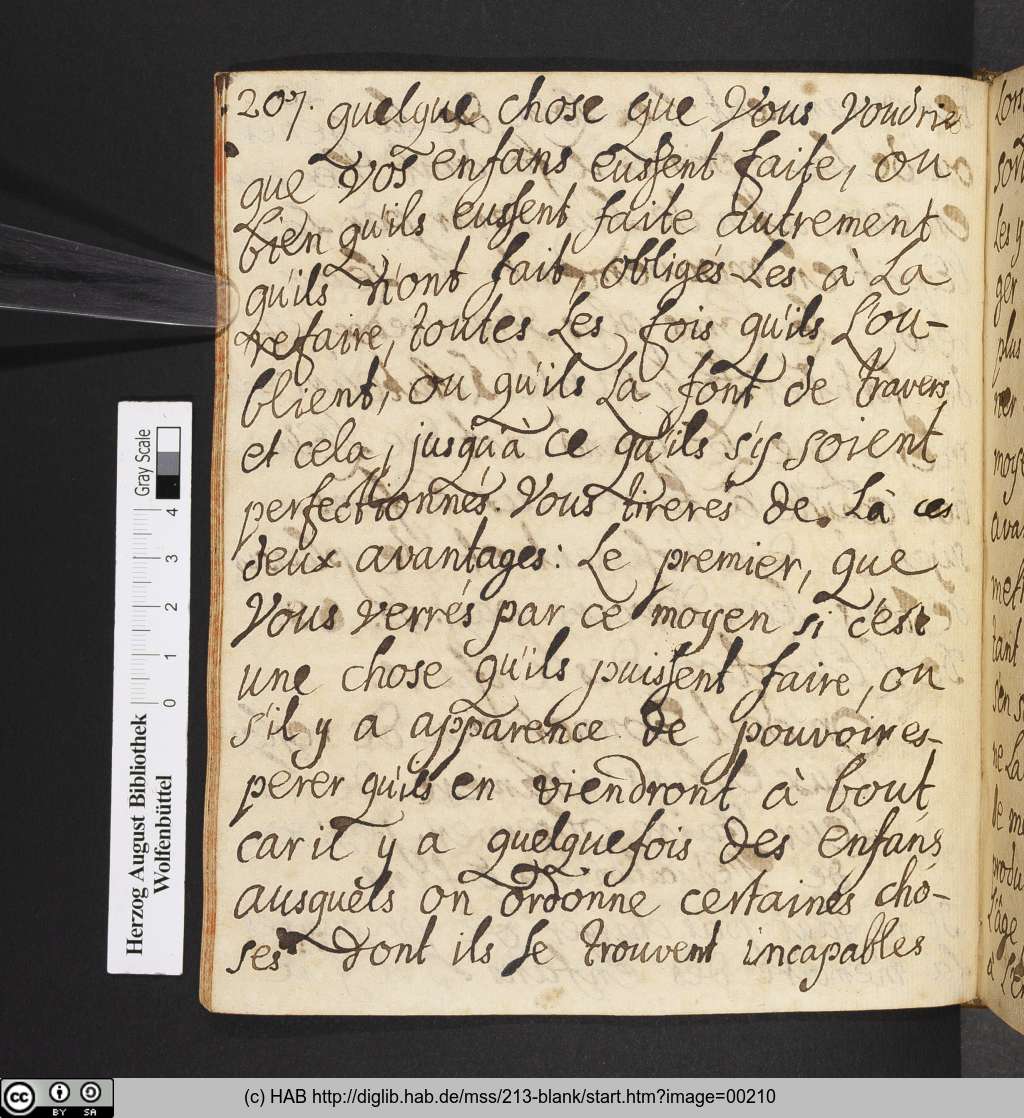 207. quelque chose que Vous Voudrie
que Vos enfans eussent faite, ou
bien qu'ils eussent faite autrement
qu'ils n'ont fait, obligés Les à La
refaire, toutes Les fois qu'ils L'ou-
blient, ou qu'ils La font de travers,
et cela, jusqu'à ce qu'ils s'y soient
perfectionnés. Vous tirerés de Là ces
deux avantages: Le premier, que
Vous verrés par ce moyen si c'est
une chose qu'ils puissent faire, ou
s'il y a apparence de pouvoir es-
perer qu'ils en viendront à bout
car il y a quelquefois des enfans
ausquels on ordonne certaines cho-
ses dont ils se trouvent incapables
Gray Scale
0 1 2 3 4
Herzog August Bibliothek
Wolfenbüttel
cc BY SA
(c) HAB http://diglib.hab.de/mss/213-blank/start.htm?image=00210